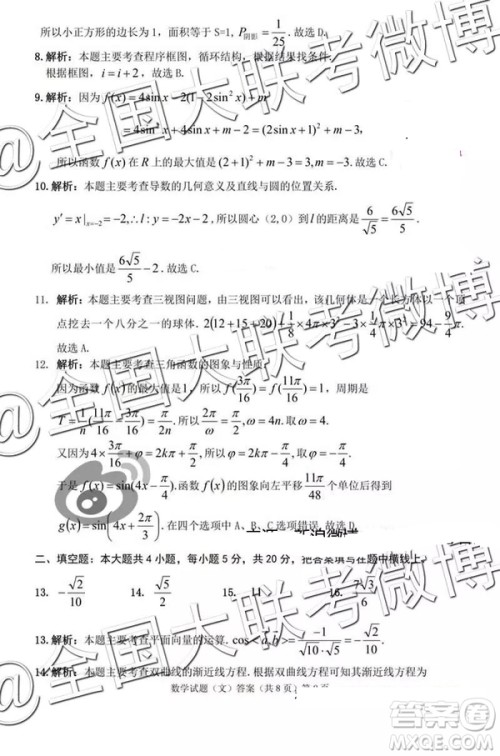 所以小正方形的边长为 1，面积等于 S=1, P阴影 = 1/25. 故选 D.
8. 解析：本题主要考查程序框图，循环结构，根据结果找条件.
根据框图，i = i + 2，故选 B.
9. 解析：因为 f(x) = 4sin x - 2(1 - 2sin² x) + m
= 4sin² x + 4sin x + m - 2 = (2sin x + 1)² + m - 3,
所以函数 f(x) 在 R 上的最大值是 (2+1)² + m - 3 = 3, 故选 C.
10. 解析：本题主要考查导数的几何意义及直线与圆的位置关系.
y' = x|x=-2 = -2, ∴ l: y = -2x - 2, 所以圆心 (2, 0) 到 l 的距离是 6/√5 = 6√5/5.
所以最小值是 6√5/5 - 2. 故选 C.
11. 解析：本题主要考查三视图问题，由三视图可以看出，该几何体是一个长方体以一个顶
点挖去一个八分之一的球体. 2(12+15+20) + 1/8·4π×3² - 3× 1/4 π×3² = 94 - 9/4 π.
故选 A.
12. 解析：本题主要考查三角函数的图象与性质.
因为函数 f(x) 的最大值是 √2, 所以 f(3π/16) = f(11π/16) = 1, 周期是
T = 1/n (11π/16 - 3π/16) = π/2n. 所以 2π/φ = π/2n, φ = 4n. 所以 φ = 4.
又因为 4× 3π/16 + φ = 2kπ + π/2, 所以 φ = 2kπ - π/4, 所以 φ = -π/4.
于是 f(x) = sin(4x - π/4). 函数 f(x) 的图象向左平移 11π/48 个单位后得到
g(x) = sin(4x + 2π/3)
选项错误. 故选 D.
二、填空题：本大题共 4 小题，每小题 5 分，共 20 分，把答案填写在题中横线上.
13. -√2/10 14. √5/2 15. 16. 7√3/6
13. 解析：本题主要考查平面向量的运算. cos<a,b> = 1/(√10·√5) = -√2/10
14. 解析：本题主要考查双曲线的渐近线方程. 根据双曲线方程可知其渐近线方程为
数学试题（文）答案（共 8 页）
@全国大联考微博
@全国大联考微博
@全国大联考微博
答案圈
MXQE.COM